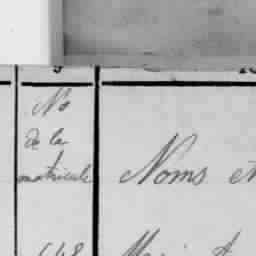 No
de la
matricule
Noms et
148